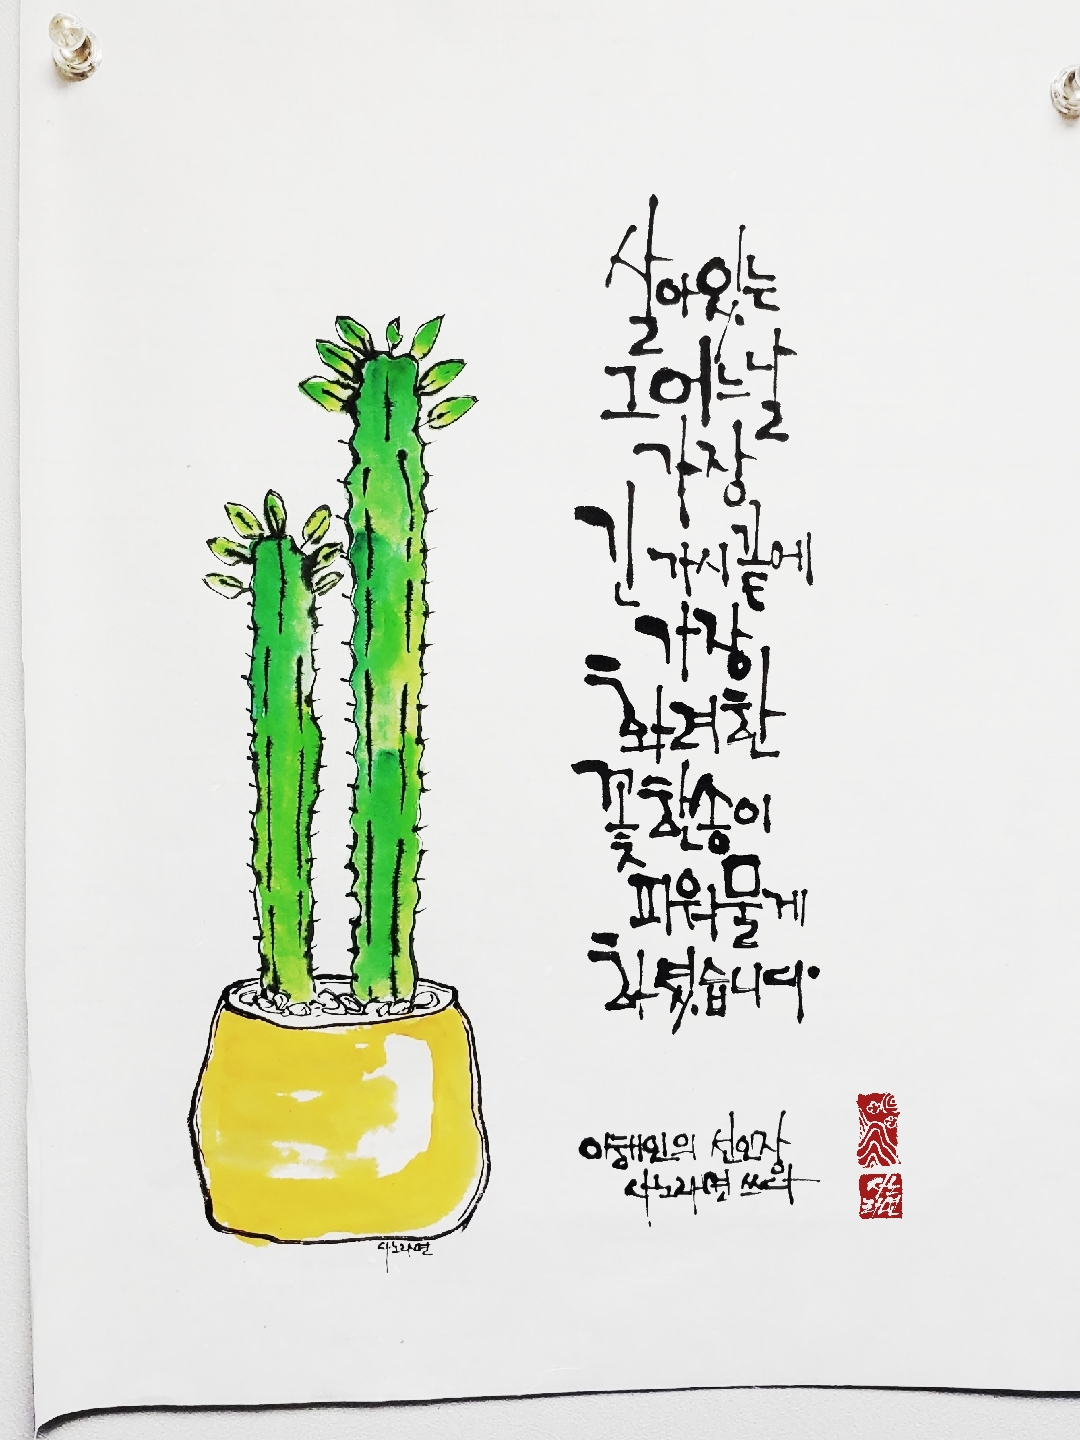 살아있는
그어느날
가장
긴 가시끝에
가장
화려한
꽃한송이
피워물게
하셨습니다.
이해인의 선인장
시노라면 쓰다
시노라면